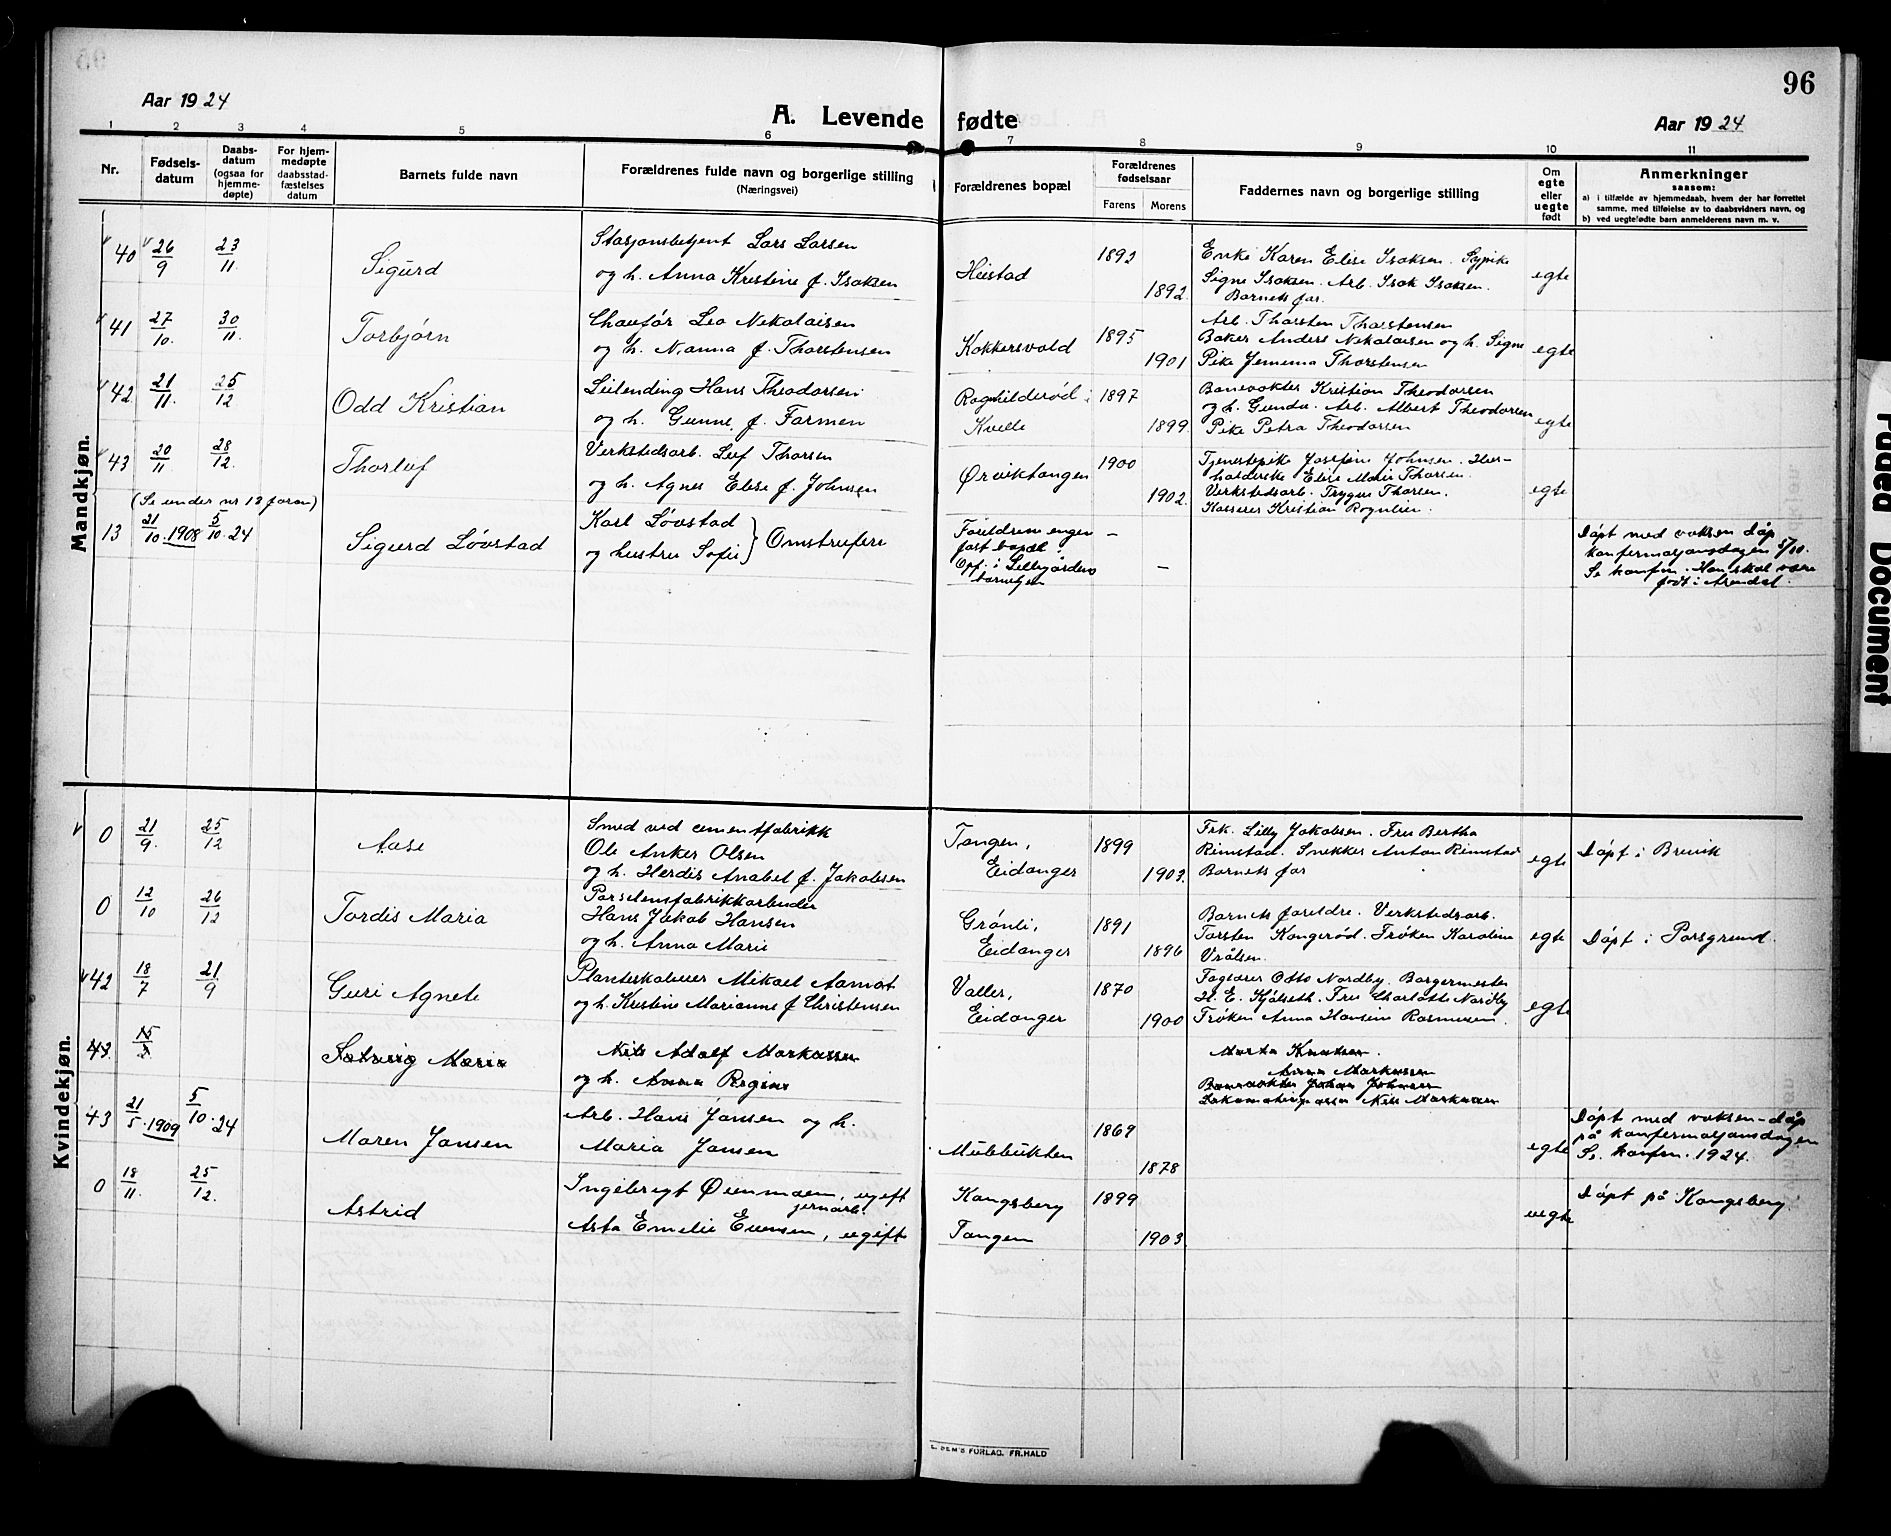 96
Aar 1924
A. Levende fødte
Aar 1924
1 2 3 4 5 6 7 8 9 10 11
Nr.
Fødsels-
datum
Daabs-
datum
(ogsaa for
hjemme-
døpte)
For hjem-
medøpte
daabsstad-
fæstelses
datum
Barnets fulde navn
Forældrenes fulde navn og borgerlige stilling
(Næringsvei)
Forældrenes bopæl
Forældrenes
fødselsaar
Farens Morens
Faddernes navn og borgerlige stilling
Om
egte
eller
uegte
født
Anmerkninger
saasom:
a) i tilfælde av hjemmedaab, hvem der har forrettet
samme, med tilføielse av to daabsvidners navn, og
b) ved uegtefødte barn anmelderens navn m. v.
Mandkjøn.
40 26/9 23/11
Sigurd
Stasjonsbetjent Lars Larsen
og h. Anna Kristine f. Isaksen
Heistad
1892
1892
Enke Karen Elise Isaksen. Sypike
Signe Isaksen. Arb. Isak Isaksen.
Barnets far.
egte
41 27/10 30/11
Torbjørn
Chaufør Leo Nikolaisen
og h. Nanna f. Thorstensen
Kokkersvold
1895
1901
Arb. Thorsten Thorstensen
Baker Anders Nikolaisen og h. Signe
Pike Jemima Thorstensen
egte
42 21/11 25/12
Odd Kristian
Leilending Hans Theodorsen
og h. Gunne f. Farmen
Ragnhilderød i
Kvelle
1897
1899
Banevokter Kristian Theodorsen
og h. Gunda. Arb. Albert Theodorsen
Pike Petra Theodorsen
egte
43 20/11 28/12
Thorleif
Verkstedsarb. Leif Thorsen
og h. Agnes Elise f. Johnsen
Ørviktangen
1900
1902
Tjenestepike Josefine Johnsen. Hus-
holderske Elise Marie Thorsen.
Verkstedsarb. Trygve Thorsen.
Kasserer Kristian Rognlien.
egte
(Se under nr 13 foran)
13 21/10 1908 5/10 24
Sigurd Løvstad
Karl Løvstad
og hustru Sofie } Omstreifere
Foreldrene ingen
fast bopæl.
Opf. i Lillegårdens
barnehjem
—
—
Døpt med voksen dåp
konfirmasjonsdagen 5/10.
Se konfirm. Han skal være
født i Arendal.
Kvindekjøn.
0 21/9 25/12
Aase
Smed ved cementfabrikk
Ole Anker Olsen
og h. Herdis Anabel f. Jakobsen
Tangen,
Eidanger
1899
1903
Frk. Lilly Jakobsen. Fru Bertha
Rimstad. Snekker Anton Rimstad
Barnets far
egte
Døpt i Brevik
0 12/10 26/12
Tordis Maria
Porselensfabrikkarbeider
Hans Jakob Hansen
og h. Anna Marie
Grønli,
Eidanger
1891
1896
Barnets foreldre. Verkstedsarb.
Torsten Kongerød. Frøken Karoline
Vrålsen.
egte
Døpt i Porsgrund.
42 18/7 21/9
Guri Agnete
Planteskoleeier Mikael Aamot
og h. Kristine Marianne f Christensen
Valler,
Eidanger
1870
1900
Faglærer Otto Nordby. Borgermester
H. E. Kjølseth. Fru Charlotte Nordby
Frøken Anna Hansine Rasmussen.
egte
43
Solveig Marie
Nils Adolf Markussen
og h. Anna Regine
Marta Knudsen.
Anna Markussen
Banevokter Johan Johnsen
Nils Markussen
43 21/5 1909 5/10 24
Maren Jansen
Arb. Hans Jansen og h.
Maria Jansen
Mulebukten
1869
1878
egte
Døpt med voksen-dåp
på konfirmasjonsdagen
Se konfirm. 1924.
0 18/11 25/12
Astrid
Ingebrigt Øienmoen, ugift
jernarb.
Asta Emelie Evensen, ugift
Kongsberg
Tangen
1899
1903
uegte
Døpt på Kongsberg
FORLAG. FR.HALD
Faded Document